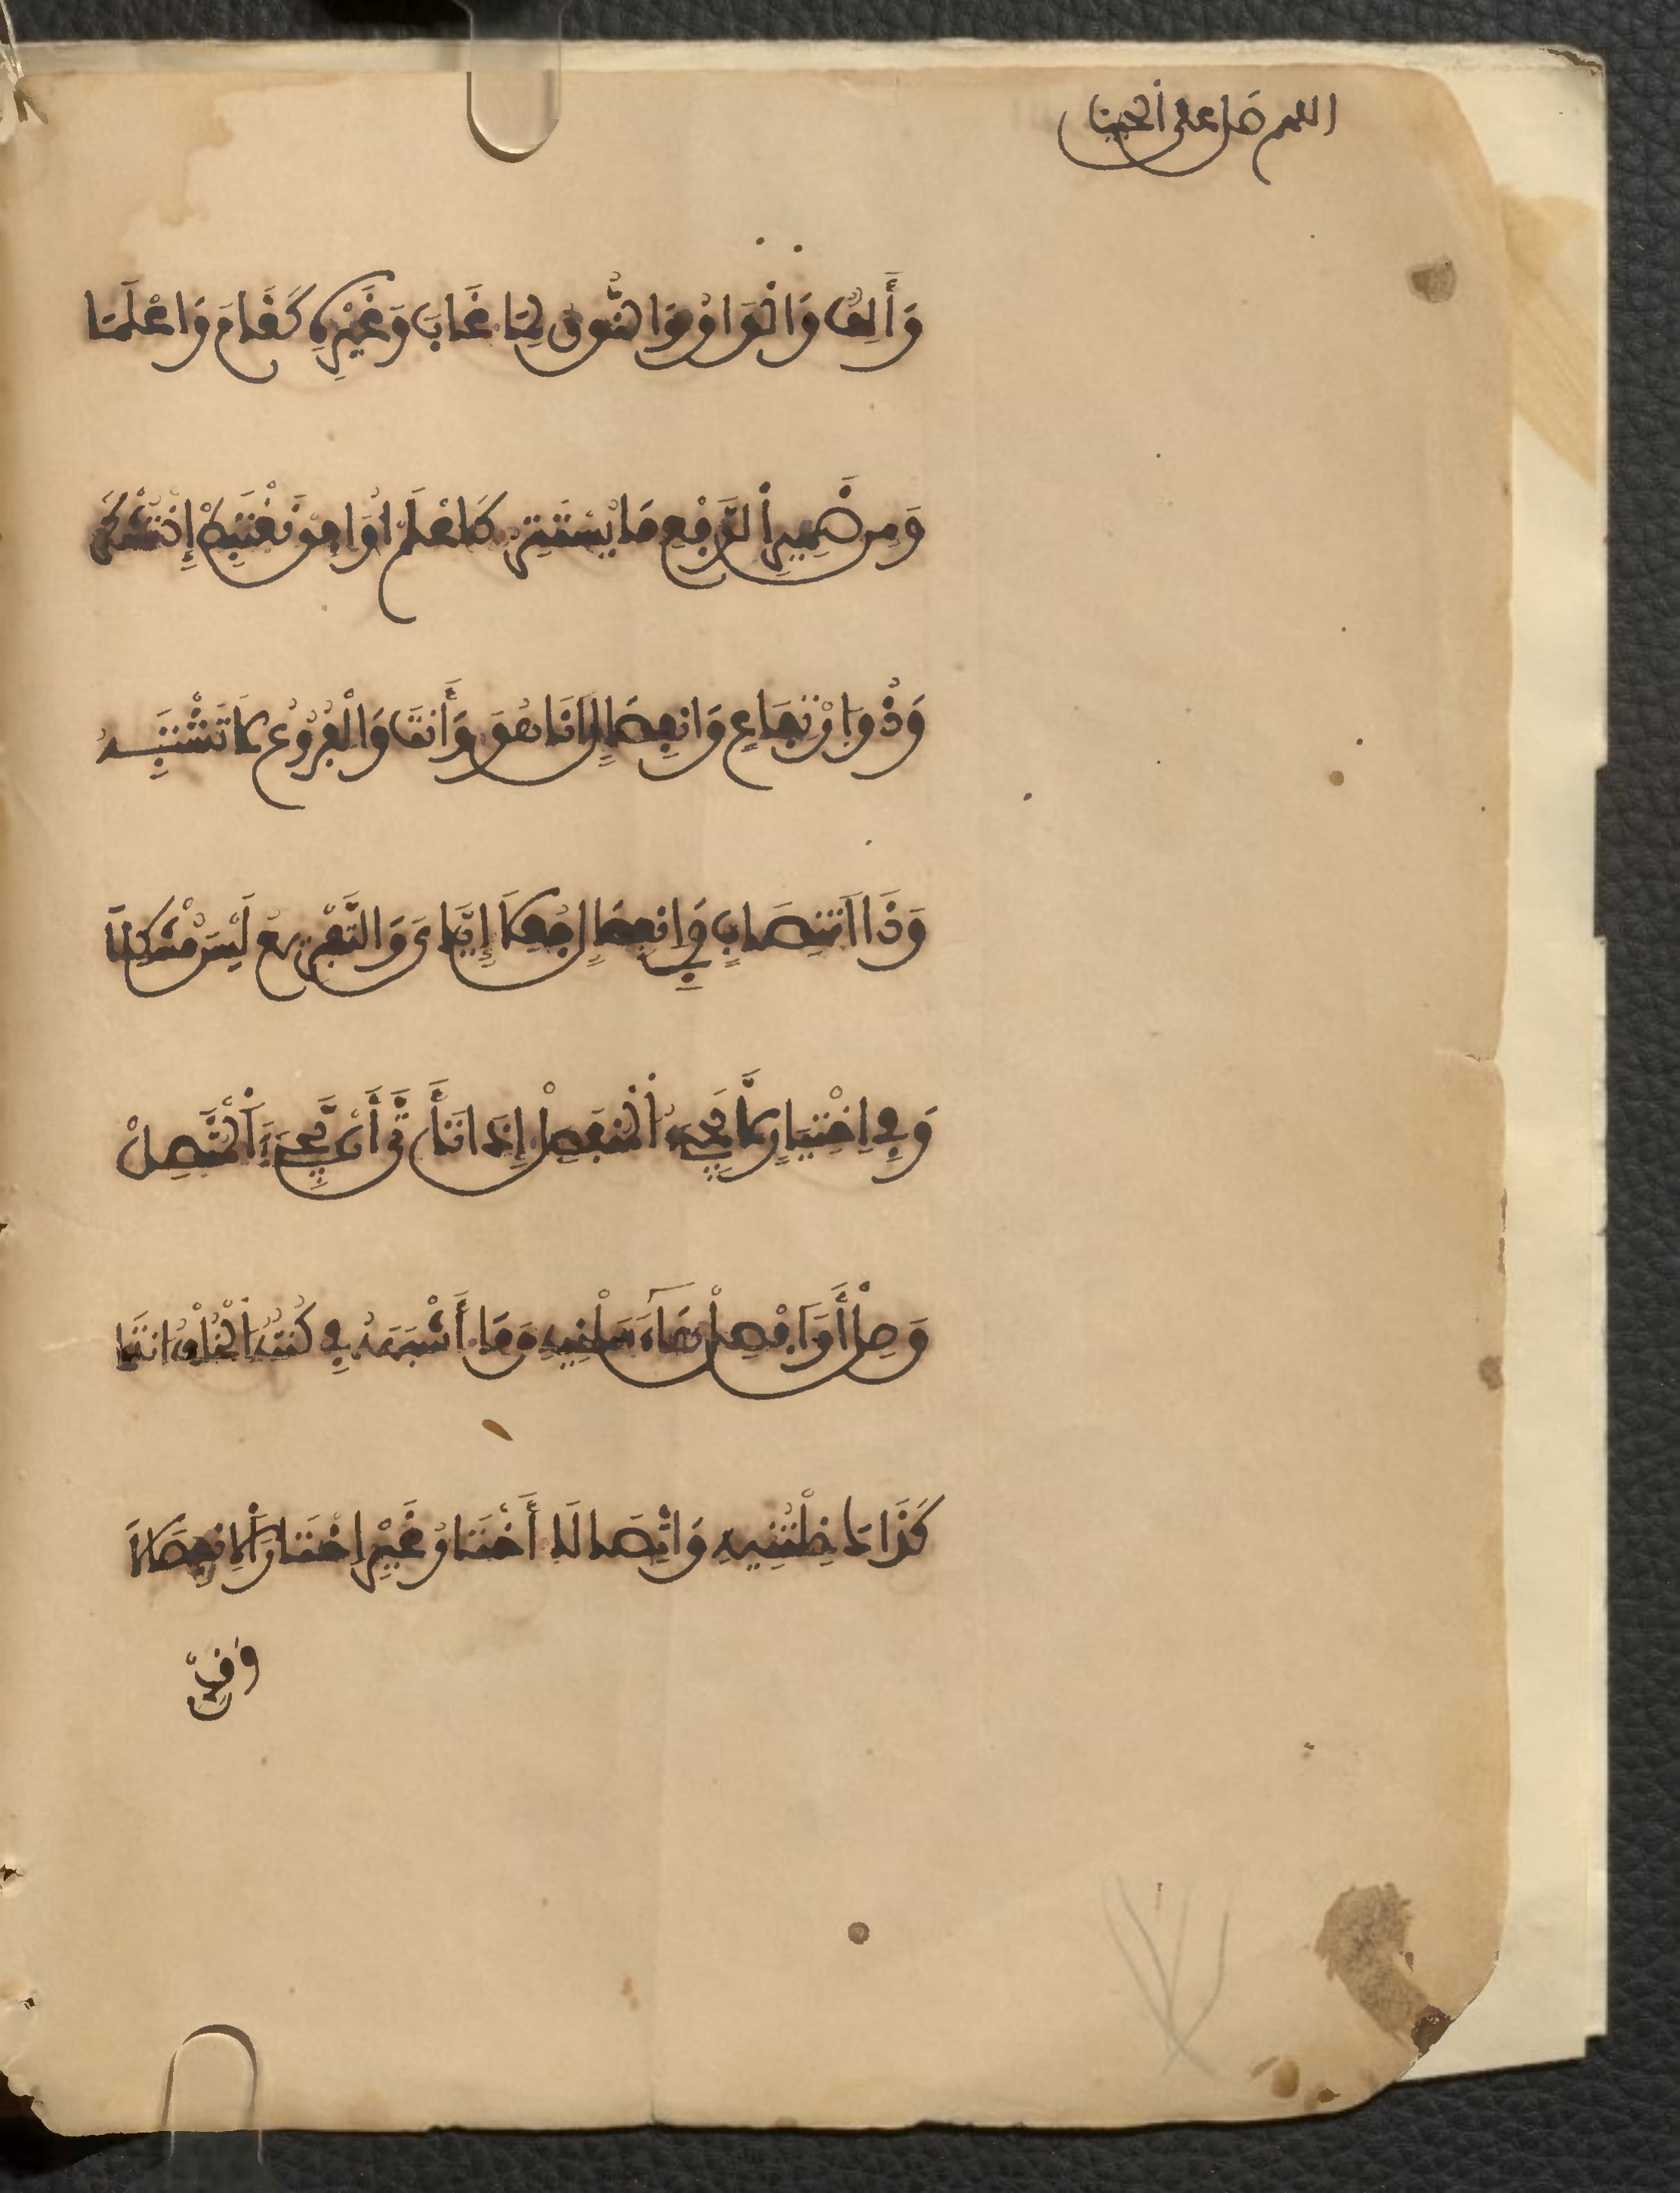 اللهم صل على
وَأَلِفٌ وَالْوَاوُ وَالنُّونُ لِمَا غَابَ وَغَيْرِهِ كَقَامَ وَاعْلَمَا
وَمِن ضَمِيرِ الرَّفْعِ مَا يَسْتَتِرُ كَافْعَلْ أُوَافِقْ نَغْتَبِطْ إِذْ تَشْكُرُ
وَذُو ارْتِفَاعٍ وَانفِصَالٍ أَنَا هُوَ وَأَنتَ وَالْفُرُوعُ لَا تَشْتَبِهُ
وَذَا انتِصَابٍ فِي انفِصَالٍ جُعِلَا إِيَّايَ وَالتَّفْرِيعُ لَيْسَ مُشْكِلَا
وَفِي اخْتِيَارٍ لَا يَجِيءُ الْمُنفَصِلْ إِذَا تَأَتَّى أَن يَجِيءَ الْمُتَّصِلْ
وَصِلْ أَوِ افْصِلْ هَاءَ سَلْنِيهِ وَمَا أَشْبَهَهُ فِي كُنتُهُ الْخُلْفُ انتَمَا
كَذَاكَ خِلْتَنِيهِ وَاتِّصَالَا أَخْتَارُ غَيْرِي اخْتَارَ الِانفِصَالَا